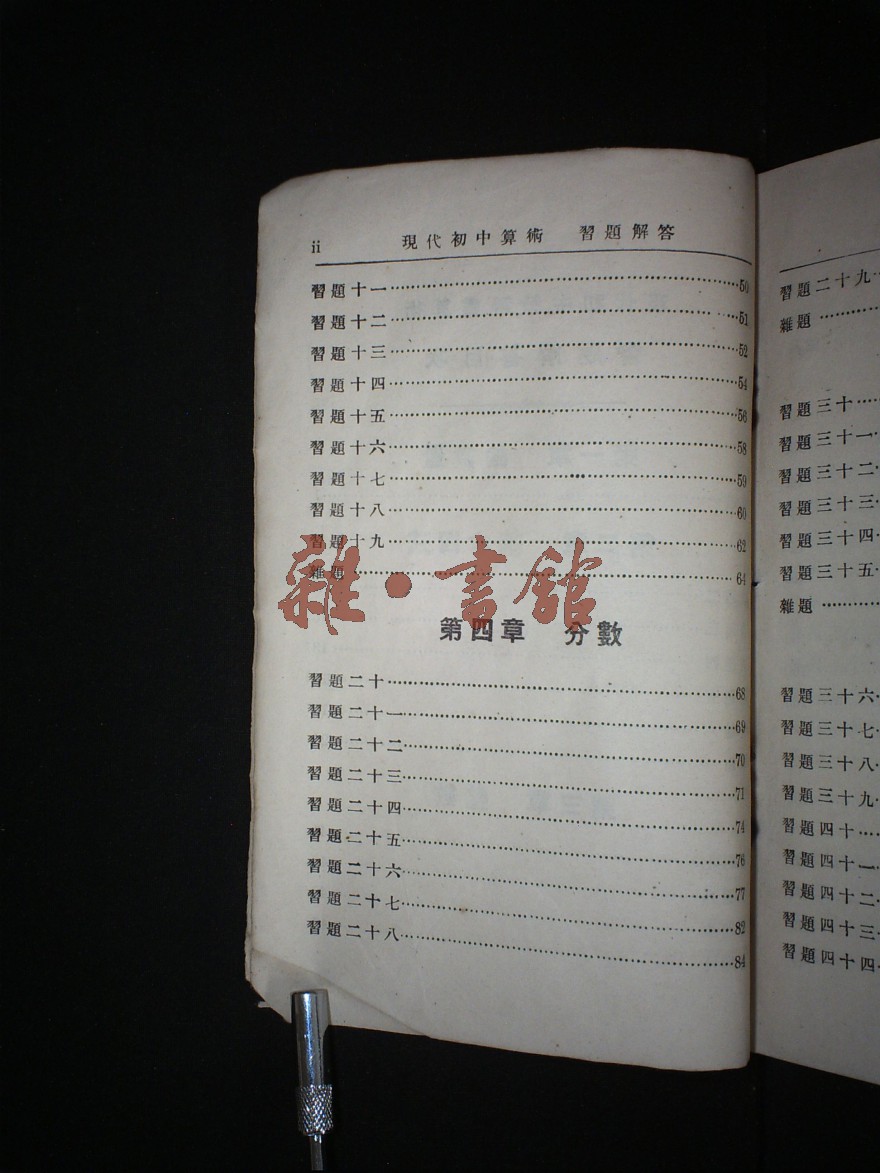 ii 現代初中算術 習題解答
習題十一……50
習題十二……51
習題十三……52
習題十四……54
習題十五……56
習題十六……58
習題十七……59
習題十八……60
習題十九……62
雜題……64
雜·書館
第四章 分數
習題二十……68
習題二十一……69
習題二十二……70
習題二十三……71
習題二十四……74
習題二十五……76
習題二十六……77
習題二十七……82
習題二十八……84
習題二十九
雜題……
習題三十……
習題三十一
習題三十二
習題三十三
習題三十四
習題三十五
雜題……
習題三十六
習題三十七
習題三十八
習題三十九
習題四十……
習題四十一
習題四十二
習題四十三
習題四十四